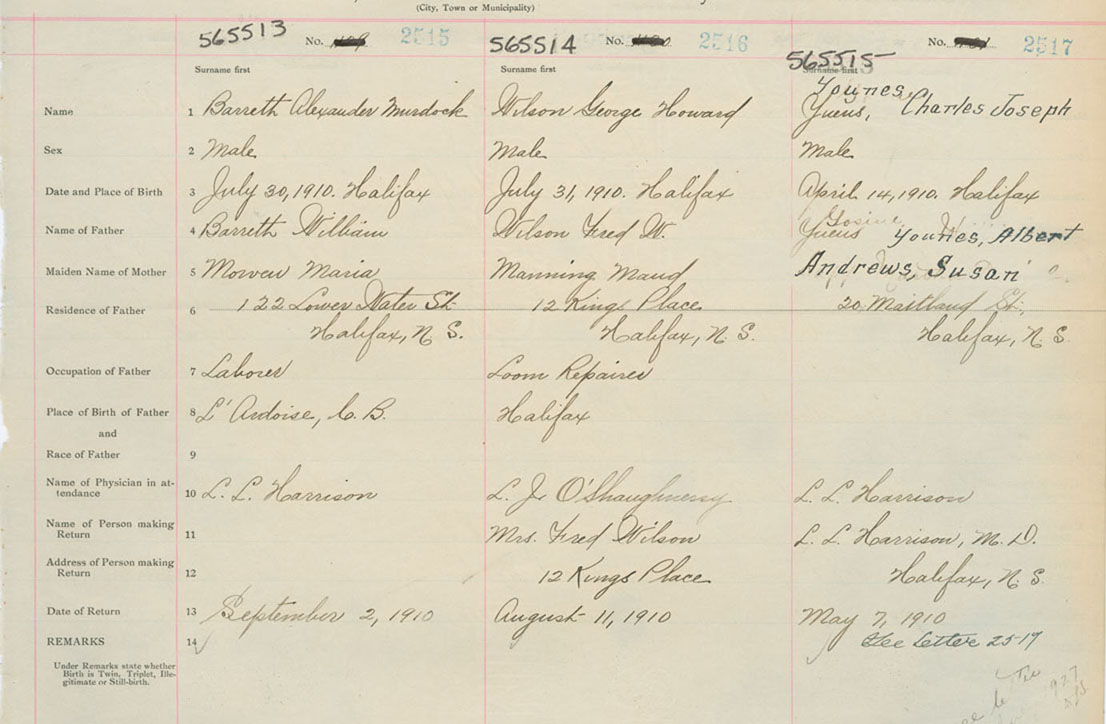 (City, Town or Municipality)
565513 No. 2515 565514 No. 2516 565515 No. 2517
Surname first Surname first Surname first
Younes,
Name 1 Barreth Alexander Murdock Wilson George Howard Yuens, Charles Joseph
Sex 2 Male Male Male
Date and Place of Birth 3 July 30, 1910. Halifax July 31, 1910. Halifax April 14, 1910. Halifax
Gosine
Name of Father 4 Barreth William Wilson Fred W. Yuens Younes, Albert
Maiden Name of Mother 5 Maria Manning Maud Andrews, Susan
Residence of Father 6 122 Lower Water St. 12 Kings Place 20 Maitland St.,
Halifax, N. S. Halifax, N. S. Halifax, N. S.
Occupation of Father 7 Laborer Loom Repairer
Place of Birth of Father 8 L'Ardoise, C. B. Halifax
and
Race of Father 9
Name of Physician in at-
tendance 10 L. L. Harrison L. J. O'Shaughnessy L. L. Harrison
Name of Person making
Return 11 Mrs. Fred Wilson L. L. Harrison, M. D.
Address of Person making
Return 12 12 Kings Place Halifax, N. S.
Date of Return 13 September 2, 1910 August 11, 1910 May 7, 1910
REMARKS 14 See Letter 2517
Under Remarks state whether
Birth is Twin, Triplet, Ille-
gitimate or Still-birth.
1927